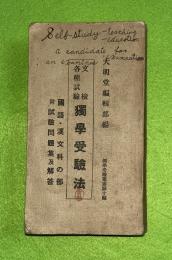 Self-study-teaching
education
a candidate for
an examinee examination
大明堂編輯部編
文檢
各種試驗
獨學受驗法
國語・漢文科の部
附 試驗問題集及解答